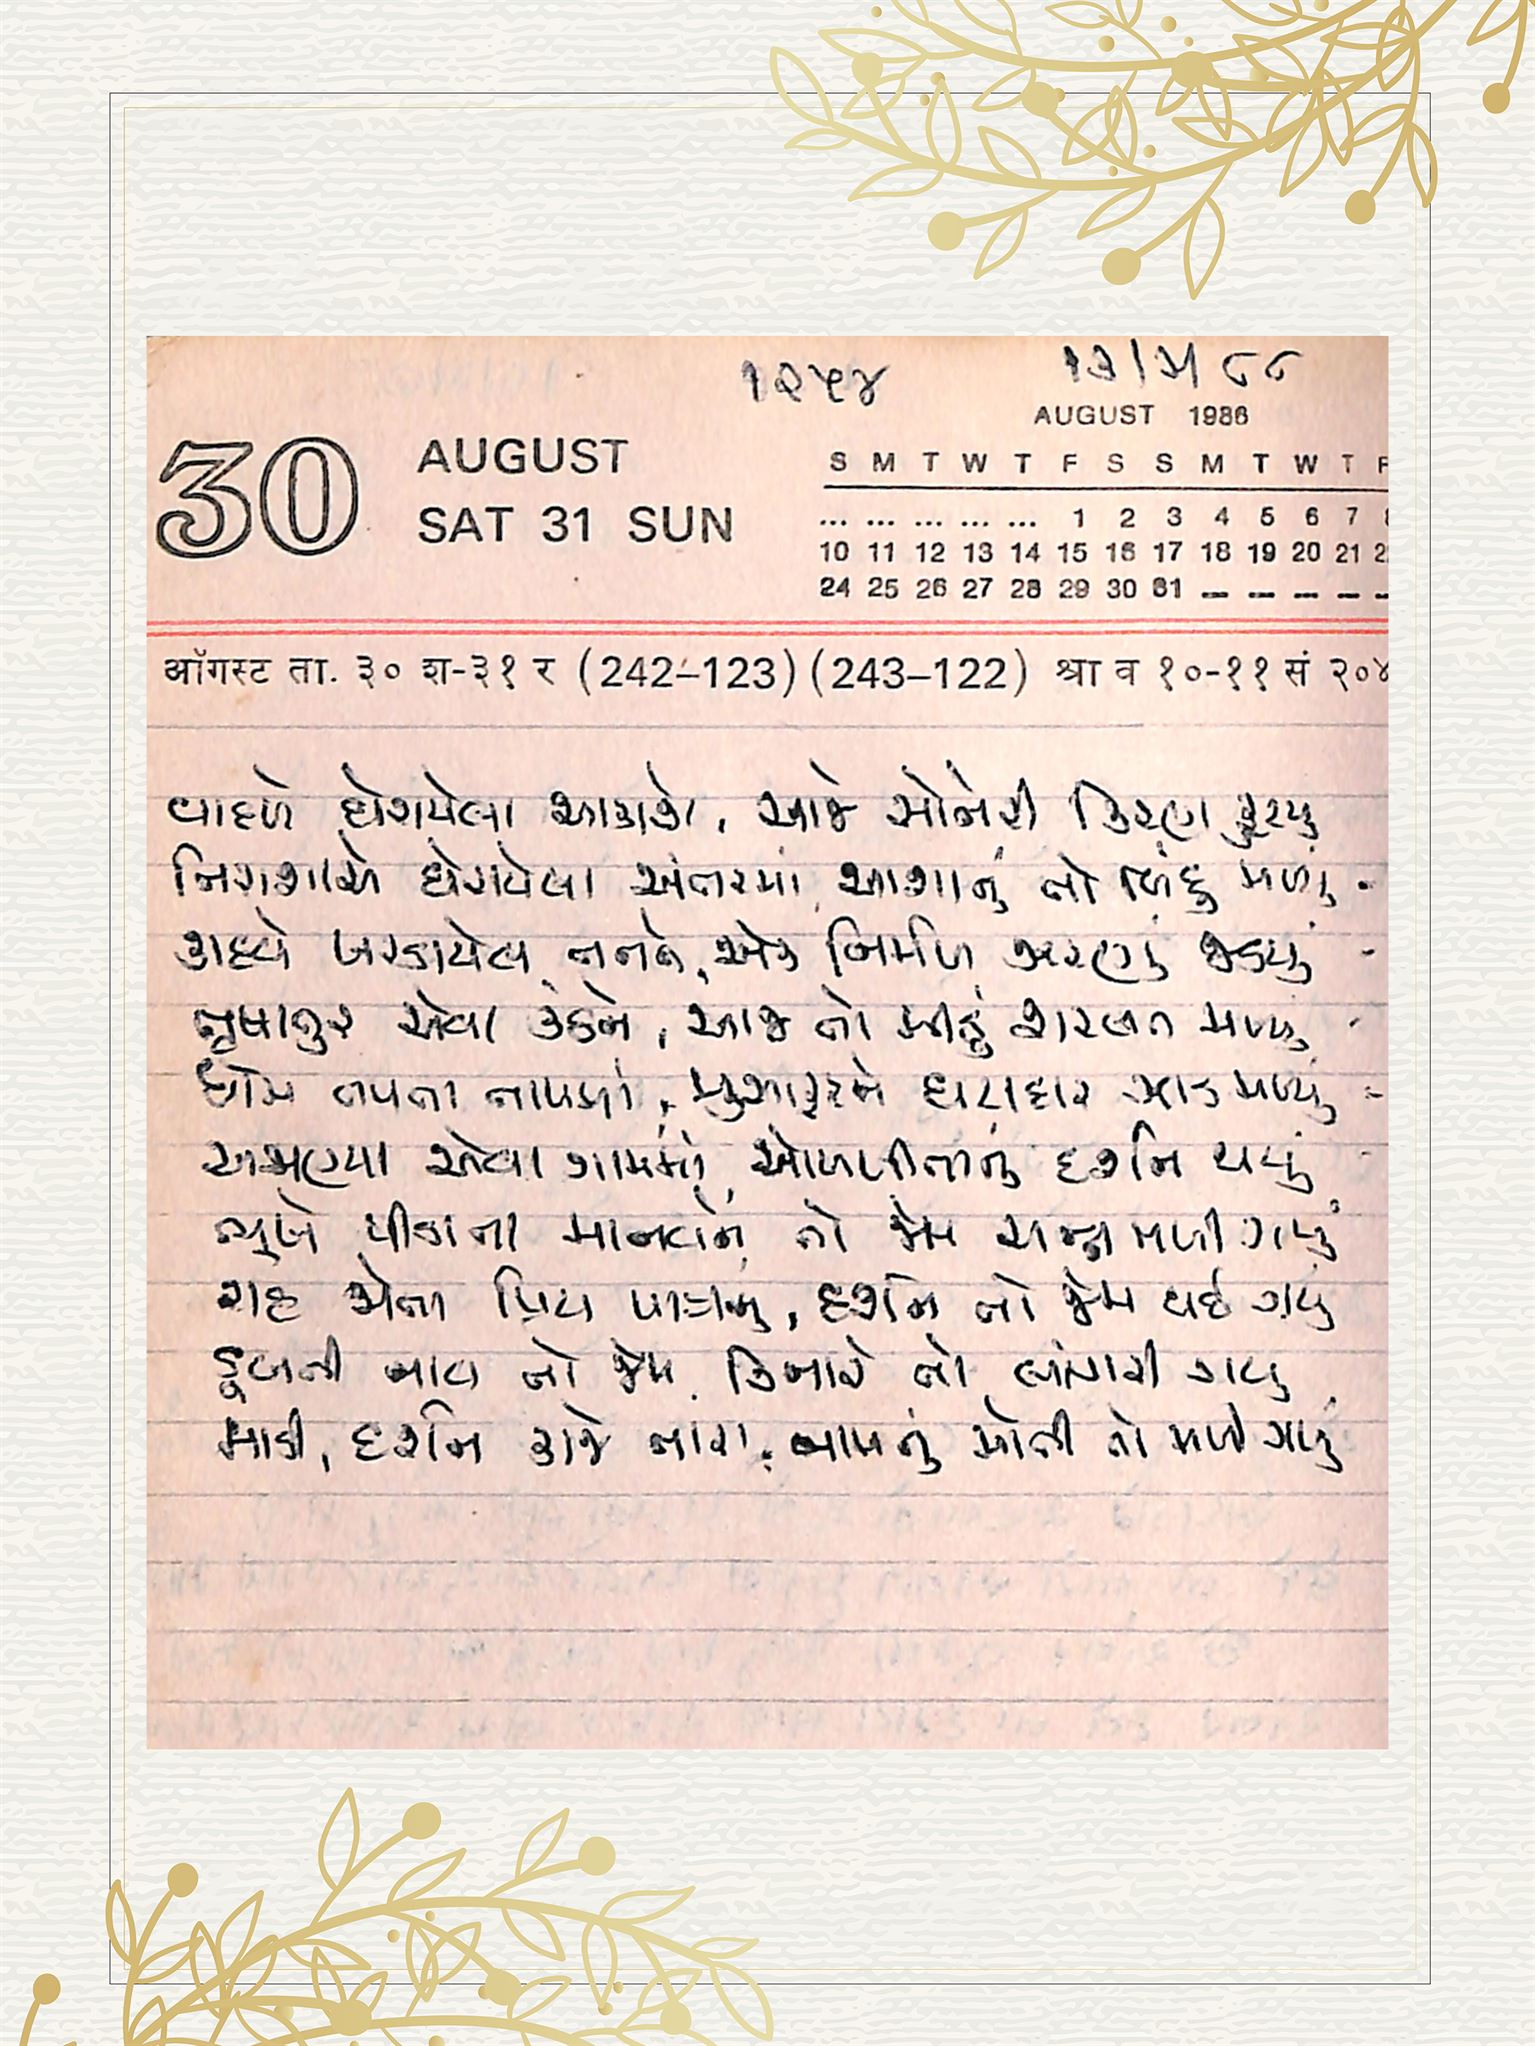 ૧૨૫૪ ૧૩/૫/૮૮
AUGUST 1986
30 AUGUST
SAT 31 SUN
S M T W T F S S M T W T F
... ... ... ... ... 1 2 3 4 5 6 7 8
10 11 12 13 14 15 16 17 18 19 20 21 2
24 25 26 27 28 29 30 31 — — — — —
ऑगस्ट ता. ३० श-३१ र (242–123) (243–122) श्रा व १०-११ सं २०४
વાદળે ઘેરાયેલા આકાશે, આજે સોનેરી કિરણ ફૂટયું
નિરાશાએ ઘેરાયેલા અંતરમાં, આશાનું તો બિંદુ મળ્યું -
કાદવે ખરડાયેલ તનને, એક નિર્મળ ઝરણું જડયું -
તૃષાતુર એવા કંઠને, આજ તો મીઠું શરબત મળ્યું -
ધોમ તપતા તાપમાં, મુસાફરને ઘટાદાર ઝાડ મળ્યું -
અજાણ્યા એવા ગામમાં, ઓળખીતાનું દર્શન થયું -
ભૂખે પીડાતા માનવને, તો જેમ અન્ન મળી ગયું
રાહ જોતા પ્રિય પાત્રનું, દર્શન તો જેમ થઈ ગયું
ડૂબતી નાવ તો જેમ, કિનારે તો લાંગરી ગયું
માડી, દર્શન કાજે તારા, નામનું મોતી તો મળી ગયું